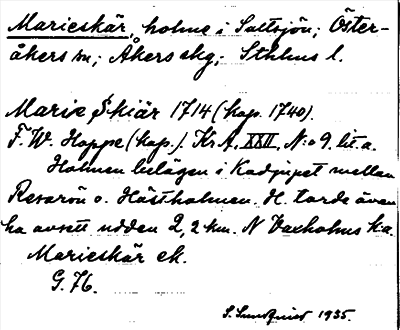 Marieskär, holme i Saltsjön; Öster-
åkers sn; Åkers skg; Sthlms l.
Marie Skiär 1714 (kop. 1740).
F. W. Hoppe (kop.). Kr A, XXII, N:o 9, lit. a.
Holmen belägen i Kodjupet mellan
Resarön o. Hästholmen. H. torde även
ha avsett udden 2,2 km. N Vaxholms ka.
Marieskär ek.
G. 76.
S. Sundquist 1935.